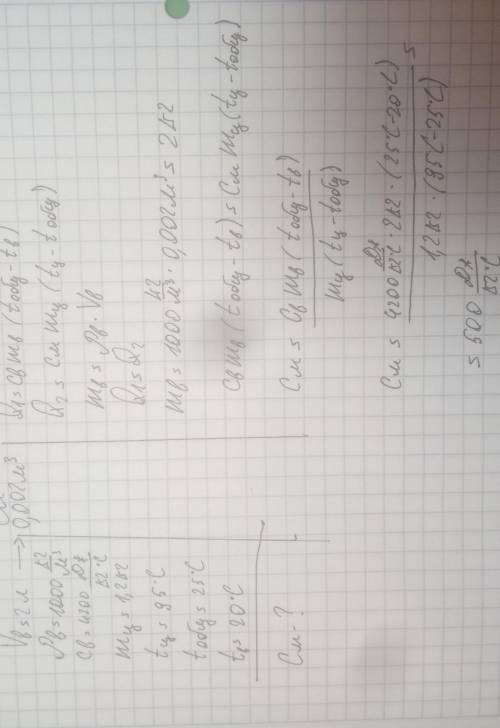 Си
Vв = 2л → 0,002м³
ρв = 1000 кг/м³
cв = 4200 Дж/кг°C
mц = 1,2кг
tц = 95°C
tобщ = 25°C
tв = 20°C
Cм - ?
Q1 = Cв mв (tобщ - tв)
Q2 = Cм mц (tц - tобщ)
mв = ρв · Vв
Q1 = Q2
mв = 1000 кг/м³ · 0,002м³ = 2кг
Cв mв (tобщ - tв) = Cм mц (tц - tобщ)
Cм = Cв mв (tобщ - tв) / mц (tц - tобщ)
Cм = 4200 Дж/кг°C · 2кг · (25°C - 20°C) / 1,2кг · (95°C - 25°C) =
= 500 Дж/кг°C